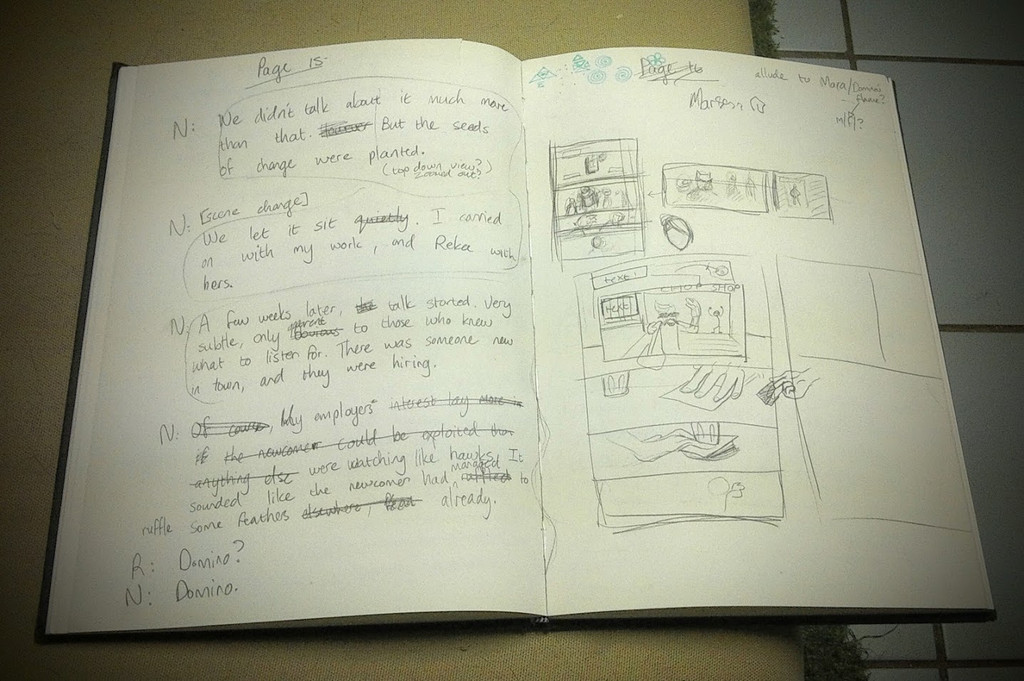 Page 15
N: We didn't talk about it much more
than that. However But the seeds
of change were planted.
(top down view?
zoomed out?)
N: [scene change]
We let it sit quietly. I carried
on with my work, and Reka with
hers.
N: A few weeks later, the talk started. Very
subtle, only obvious apparent to those who knew
what to listen for. There was someone new
in town, and they were hiring.
N: Of course, My employers interest lay more in
if the newcomer could be exploited than
anything else were watching like hawks. It
sounded like the newcomer had managed ruffled to
ruffle some feathers elsewhere, already.
R: Domino?
N: Domino.
Page 16
allude to Mara/Domino
text!
SHOP
text